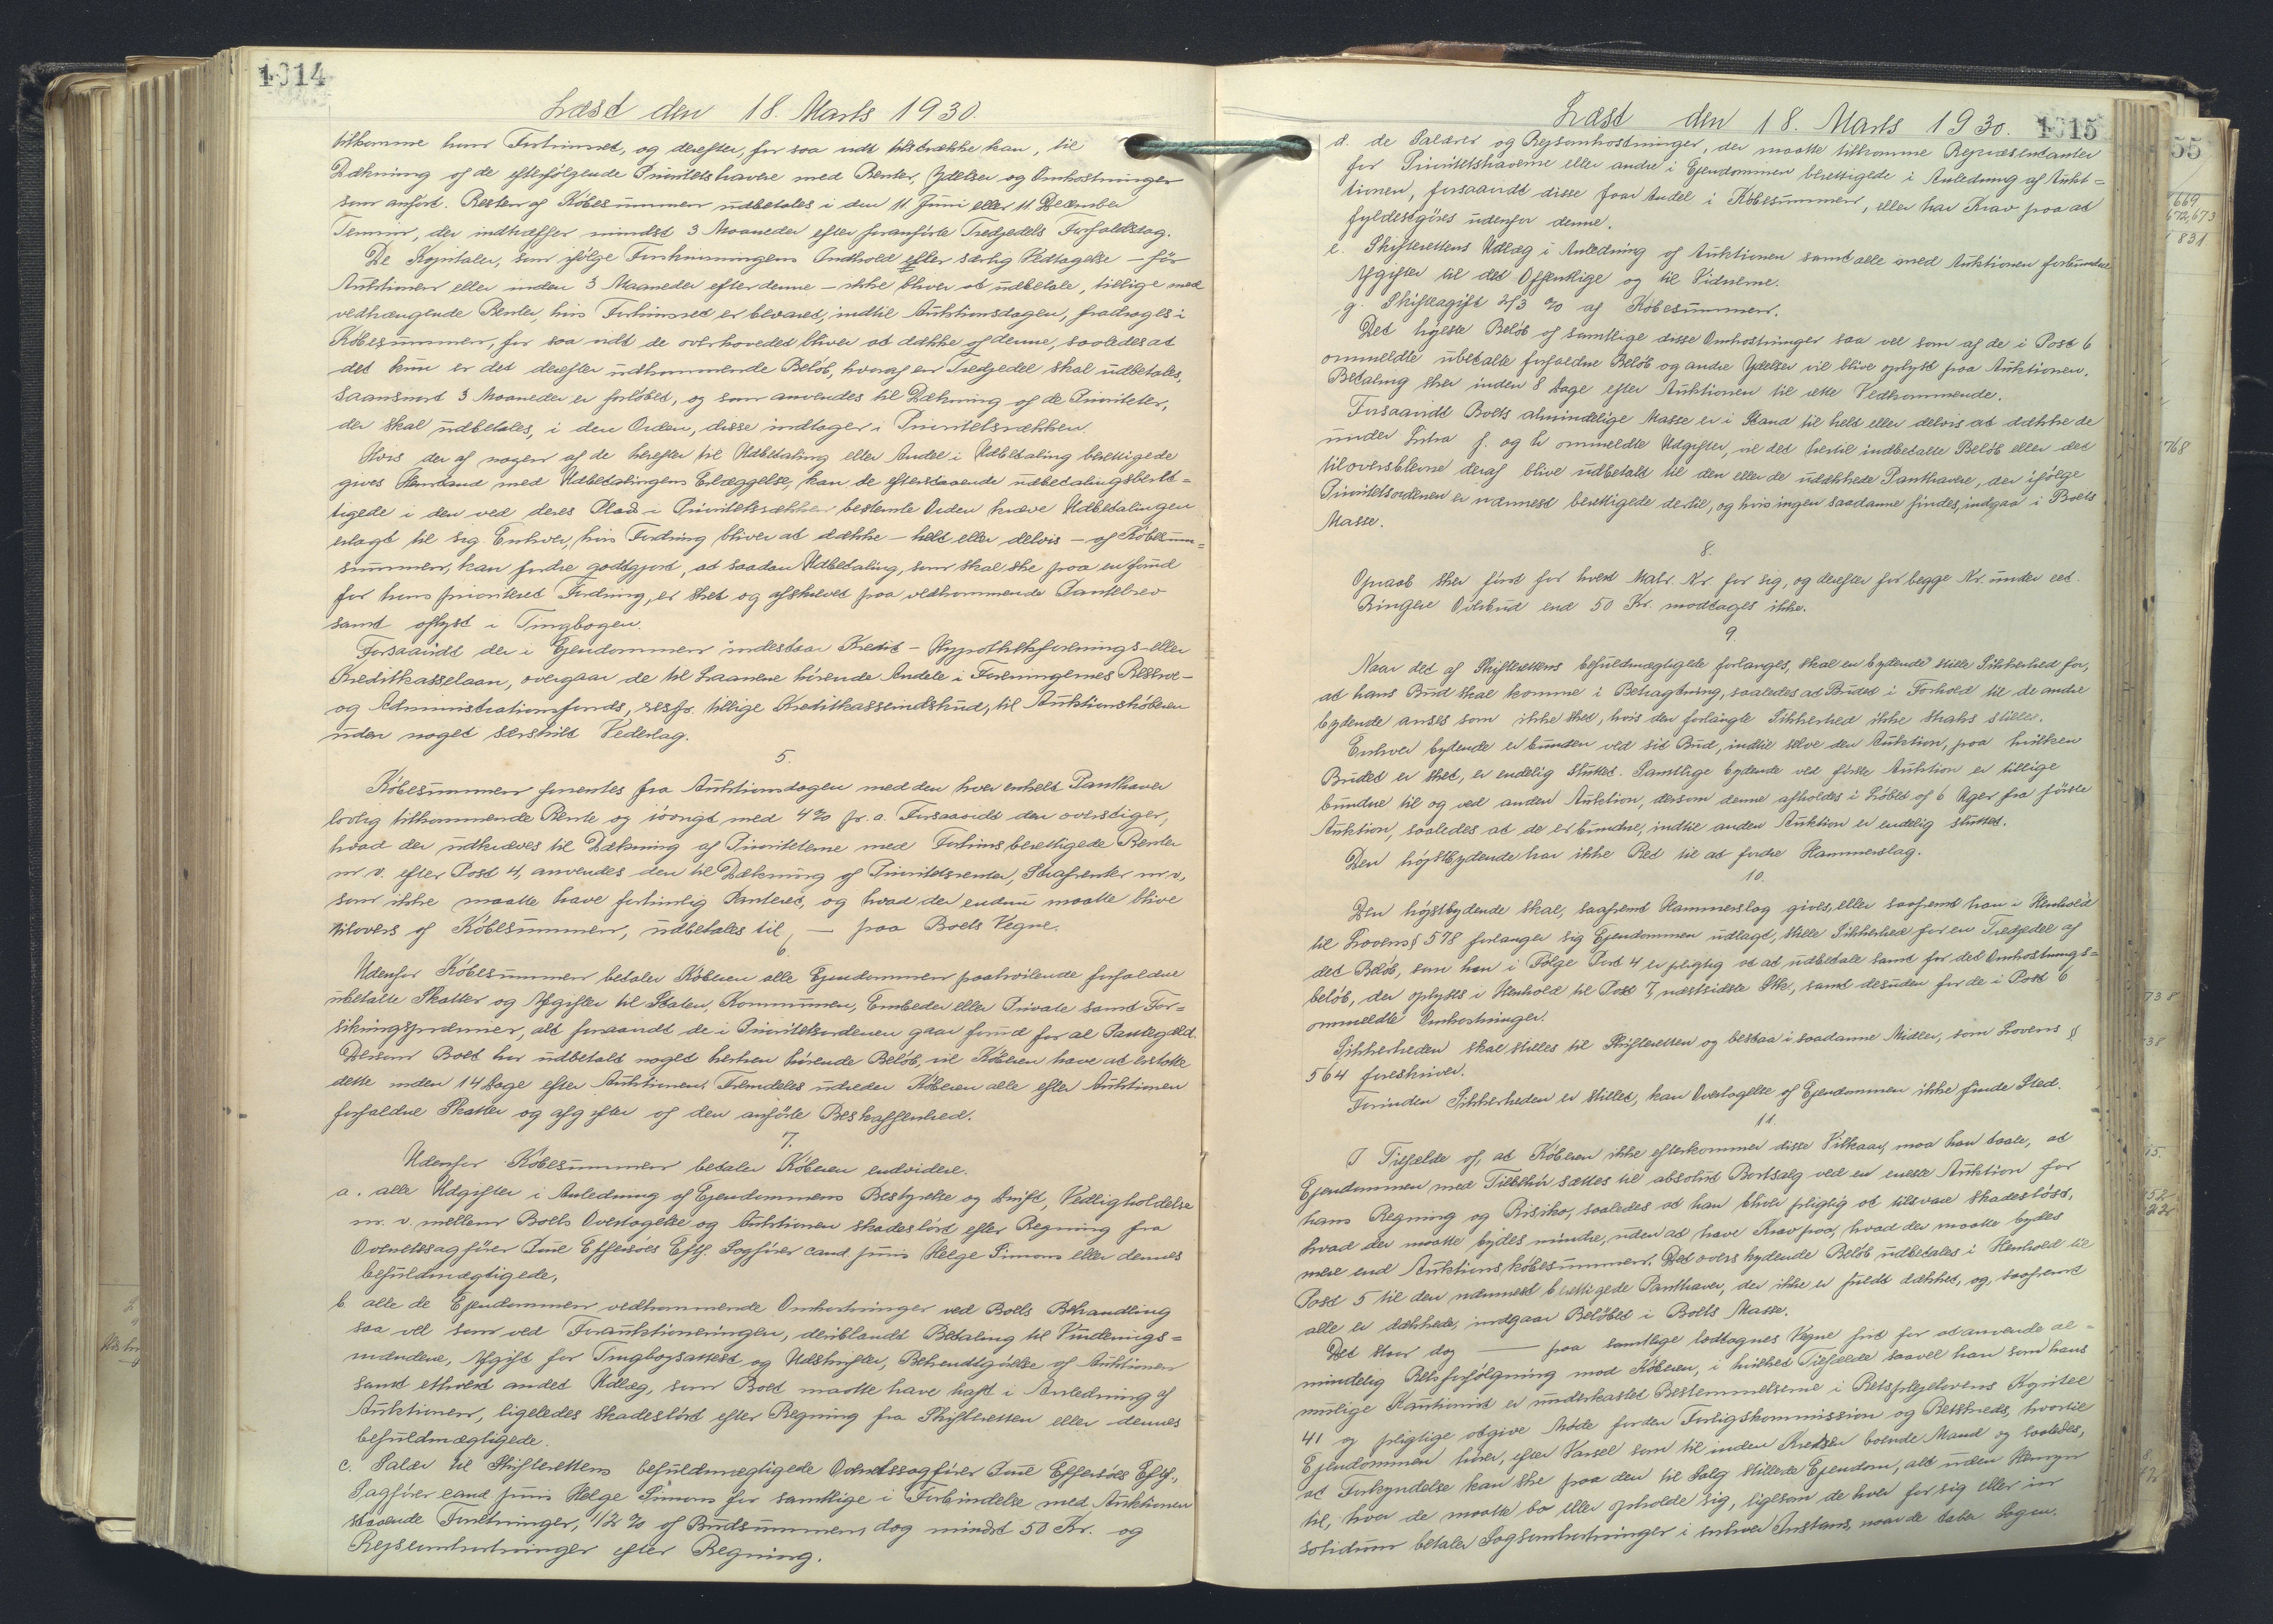 1014
Læst den 18. Marts 1930.
tilkomme ham Fortrinsret, og derefter, for saa vidt tilstrække kan, til
Dækning af de efterfølgende Prioritetshavere med Renter, Ydelser og Omkostninger
som anført. Resten af Købesummen udbetales i den 11 Juni eller 11. December
Termin, der indtræffer mindst 3 Maaneder efter foranførte Tredjedels Forfaldsdag.
De Kapitaler, som ifølge Forskrivningens Indhold efter særlig Vedtagelse – før
Auktionen eller inden 3 Maaneder efter denne – ikke bliver at udbetale, tillige med
vedhængende Renter, hvis Fortrinsret er bevaret, indtil Auktionsdagen, fradrages i
Købesummen, for saa vidt de overhovedet bliver at dække af denne, saaledes at
det kun er det derefter udkommende Beløb, hvoraf en Tredjedel skal udbetales,
saasnart 3 Maaneder er forløbet, og som anvendes til Dækning af de Prioriteter,
der skal udbetales, i den Orden, disse indtager i Prioritetsrækken.
Hvis der af nogen af de herefter til Udbetaling eller Andel i Udbetaling berettigede
gives Henstand med Udbetalingens Erlæggelse, kan de efterstaaende udbetalingsberet=
tigede i den ved deres Plads i Prioritetsrækken bestemte Orden kræve Udbetalingen
erlagt til sig. Enhver, hvis Fordring bliver at dække – helt eller delvis – af Købesum=
summen, kan fordre godtgjort, at saadan Udbetaling, som skal ske paa en forud
for hans prioriteret Fordring, er sket og afskrevet paa vedkommende Pantebrev
samt aflyst i Tingbogen.
Forsaavidt der i Ejendommen indestaar Kredit – Hypothekforenings- eller
Kreditkasselaan, overgaar de til Laanene hørende Andele i Foreningernes Reserve-
og Administrationsfonds, resp. tillige Kreditkasseindskud, til Auktionskøberen
uden noget særskilt Vederlag.
5.
Købesummen forrentes fra Auktionsdagen med den hver enkelt Panthaver
lovlig tilkommende Rente og iøvrigt med 4% p. a. Forsaavidt den overstiger,
hvad der udkræves til Dækning af Prioriteterne med Fortrinsberettigede Renter
m. v. efter Post 4, anvendes den til Dækning af Prioritetsrenter, Strafrenter m. v.,
som ikke maatte have fortrinlig Panteret, og hvad der endnu maatte blive
tilovers af Købesummen, udbetales til, — paa Boets Vegne.
6
Udenfor Købesummen betaler Køberen alle Ejendommen paahvilende forfaldne
ubetalte Skatter og Afgifter til Staten, Kommunen, Embeder eller Private samt For=
sikringspræmier, alt forsaavidt de i Prioritetsordenen gaar forud for al Pantegæld.
Dersom Boet har udbetalt noget herhen hørende Beløb, vil Køberen have at erstatte
dette inden 14 Dage efter Auktionen. Fremdeles udreder Køberen alle efter Auktionen
forfaldne Skatter og afgifter af den anførte Beskaffenhed.
7.
Udenfor Købesummen betaler Køberen endvidere.
a. alle Udgifter i Anledning af Ejendommens Bestyrelse og Drift, Vedligholdelse
m. v. mellem Boets Overtagelse og Auktionen skadesløst efter Regning fra
Overretssagfører Juul Effersøes Eftf. Sagfører cand. juris Helge Simons eller dennes
befuldmægtigede,
b. alle de Ejendommen vedkommende Omkostninger ved Boets Behandling
saa vel som ved Forauktioneringen, deriblandt Betaling til Vurderings=
mændene, Afgift for Tingbogsattest og Udskrifter, Bekendtgørelse af Auktionen
samt ethvert andet Udlæg, som Boet maatte have haft i Anledning af
Auktionen, ligeledes skadesløst efter Regning fra Skifteretten eller dennes
befuldmægtigede.
c. Salær til Skifterettens befuldmægtigede Overretssagfører Juul Effersøes Eftf.,
Sagfører cand. juris Helge Simons for samtlige i Forbindelse med Auktionen
staaende Forretninger, 1/2 % af Budsummen, dog mindst 50 Kr. og
Rejseomkostninger efter Regning.
Læst den 18. Marts 1930. 1015
d. de Salærer og Rejseomkostninger, der maatte tilkomme Repræsentanter
for Prioritetshaverne eller andre i Ejendommen berettigede i Anledning af Aukt=
tionen, forsaavidt disse faar Andel i Købesummen, eller har Krav paa at
fyldestgøres udenfor denne.
e. Skifterettens Udlæg i Anledning af Auktionen samt alle med Auktionen forbundne
Afgifter til det Offentlige og til Vidnerne.
g. Skifteafgift 2/3 % af Købesummen.
Det højeste Beløb af samtlige disse Omkostninger saa vel som af de i Post 6
ommeldte ubetalte forfaldne Beløb og andre Ydelser vil blive oplyst paa Auktionen.
Betaling sker inden 8 Dage efter Auktionen til rette Vedkommende.
Forsaavidt Boets almindelige Masse er i Stand til helt eller delvis at dække de
under Litra f. og h ommeldte Udgifter, vil det hertil indbetalte Beløb eller det
tiloversblevne deraf blive udbetalt til den eller de udækkede Panthavere, der ifølge
Prioritetsordenen er nærmest berettigede dertil, og hvis ingen saadanne findes, indgaa i Boets
Masse.
8.
Opraab sker først for hvert Matr. Nr. for sig, og derefter for begge Nr. under eet.
Ringere Overbud end 50 Kr. modtages ikke.
9.
Naar det af Skifterettens befuldmægtigede forlanges, skal en bydende stille Sikkerhed for,
at hans Bud skal komme i Betragtning, saaledes at Budet i Forhold til de andre
bydende anses som ikke sket, hvis den forlangte Sikkerhed ikke straks stilles.
Enhver bydende er bunden ved sit Bud, indtil selve den Auktion, paa hvilken
Budet er sket, er endelig sluttet. Samtlige bydende ved første Auktion er tillige
bundne til og ved anden Auktion, dersom denne afholdes i Løbet af 6 Uger fra første
Auktion, saaledes at de er bundne, indtil anden Auktion er endelig sluttet.
Den højstbydende har ikke Ret til at fordre Hammerslag.
10.
Den højstbydende skal, saafremt Hammerslag gives, eller saafremt han i Henhold
til Lovens § 578 forlanger sig Ejendommen udlagt, stille Sikkerhed for en Tredjedel af
det Beløb, som han i Følge Post 4 er pligtig at udbetale samt for det Omkostnings=
beløb, der oplyses i Henhold til Post 7, næstsidste Stk., samt desuden for de i Post 6
ommeldte Omkostninger.
Sikkerheden skal stilles til Skifteretten og bestaa i saadanne Midler, som Lovens §
564 foreskriver.
Forinden Sikkerheden er stillet, kan Overtagelse af Ejendommen ikke finde Sted.
11.
I Tilfælde af, at Køberen ikke efterkommer disse Vilkaar, maa han taale, at
Ejendommen med Tilbehør sættes til absolut Bortsalg ved en eneste Auktion for
hans Regning og Risiko, saaledes at han bliver pligtig at tilsvare skadesløst,
hvad der maatte bydes mindre, uden at have Krav paa, hvad der maatte bydes
mere end Auktionskøbesummen. Det overskydende Beløb udbetales i Henhold til
Post 5 til den nærmest berettigede Panthaver, der ikke er fuldt dækket, og, saafremt
alle er dækkede, indgaar Beløbet i Boets Masse.
Det staar dog — paa samtlige lodtagnes Vegne frit for at anvende al=
mindelig Retsforfølgning mod Køberen, i hvilket Tilfælde saavel han som hans
mulige Kautionist er underkastet Bestemmelserne i Retsplejelovens Kapitel
41 og pligtige at give Møde for den Forligskommission og Retskreds, hvortil
Ejendommen hører, efter Varsel som til inden Kredsen boende Mand og saaledes,
at Forkyndelse kan ske paa den til Salg stillede Ejendom, alt uden Hensyn
til, hvor de maatte bo eller opholde sig, ligesom de hver for sig eller in
solidum betaler Sagsomkostninger i enhver Instans, naar de taber Sagen.
55
669
672,673
831
768
738
38